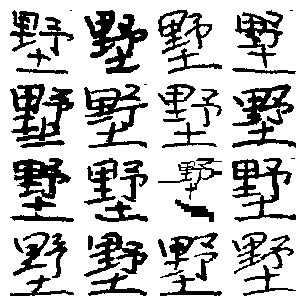 墅墅墅墅
墅墅墅墅
墅墅墅墅
墅墅墅墅